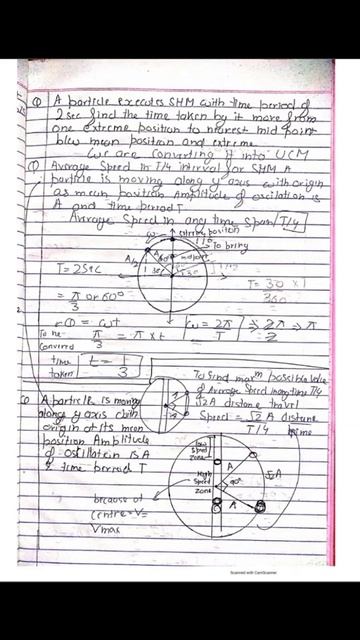 Q A particle executes SHM with time period of
2 sec find the time taken by it move from
one extreme position to nearest mid point
b/w mean position and extreme
We are converting it into UCM
Q Average Speed in T/4 interval for SHM A
particle is moving along y axis with origin
as mean position Amplitude of oscillation is
A and time period T
Average Speed in any time span T/4
ω
extreme position
To bring
A/2
A
60°
mid point
30°
T = 2sec
= π/3 or 60°
T = 30 × 1
360
θ = ωt
ω = 2π/T ⇒ 2π/2 ⇒ π
To be
converted
π/3 = π × t
time
taken
t = 1/3
To find maxm possible value
of Average Speed in any time T/4
√2 A distance travel
Speed = √2 A distance
T/4 time
Q A particle is moving
along y axis with
origin at its mean
position Amplitude
of oscillation is A
& time period T
low
Speed
zone
High
Speed
zone
A
90°
√2A
A
because at
centre = V =
Vmax
Scanned with CamScanner